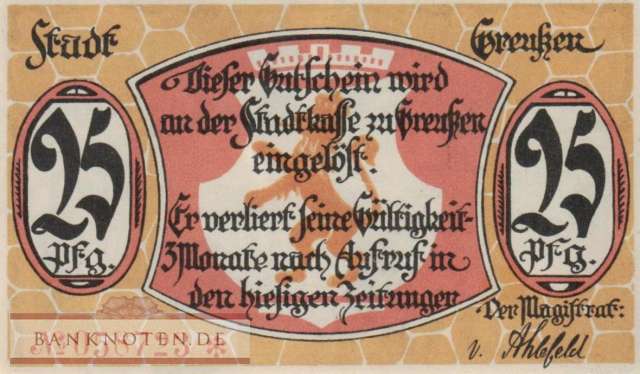 Stadt Greußen
Dieser Gutschein wird
an der Stadtkasse zu Greußen
eingelöst.
Er verliert seine Gültigkeit
3 Monate nach Aufruf in
den hiesigen Zeitungen
25 Pfg.
25 Pfg.
Der Magistrat:
v. Ahlefeld
BANKNOTEN.DE